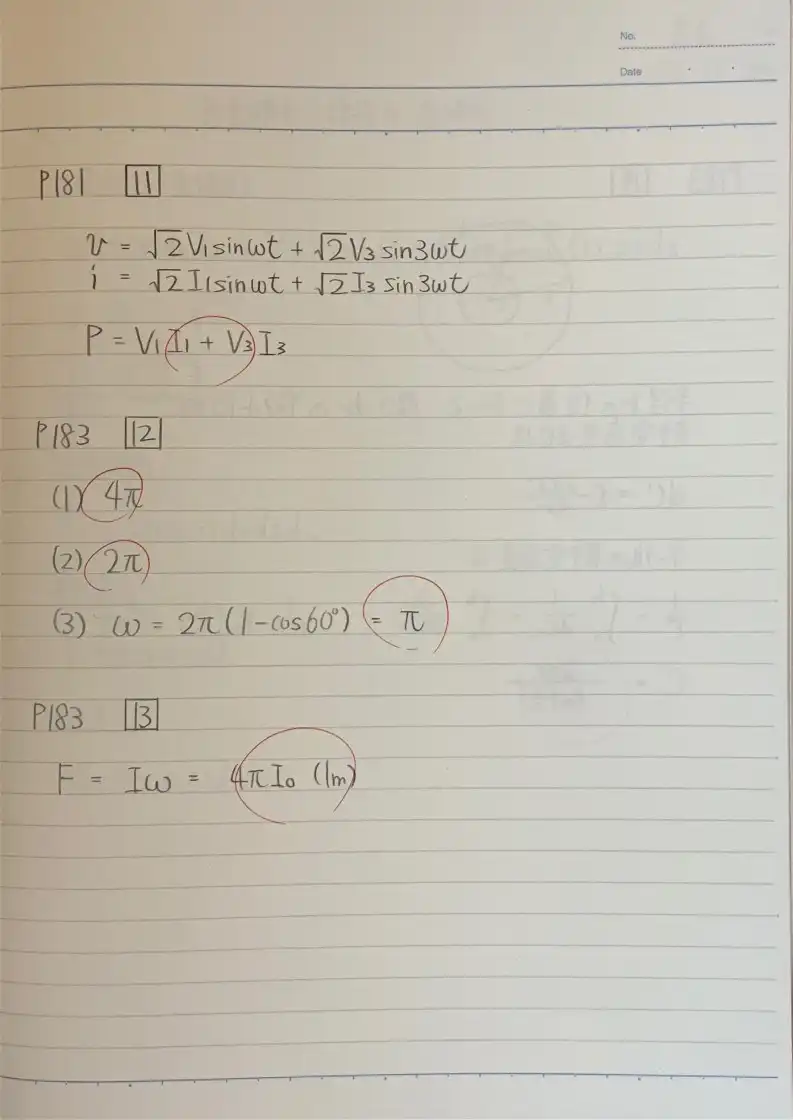 No.
Date
P181 11
v = √2V₁sinωt + √2V₃sin3ωt
i = √2I₁sinωt + √2I₃sin3ωt
P = V₁I₁ + V₃I₃
P183 12
(1) 4π
(2) 2π
(3) ω = 2π(1-cos60°) = π
P183 13
F = Iω = 4πI₀ (lm)